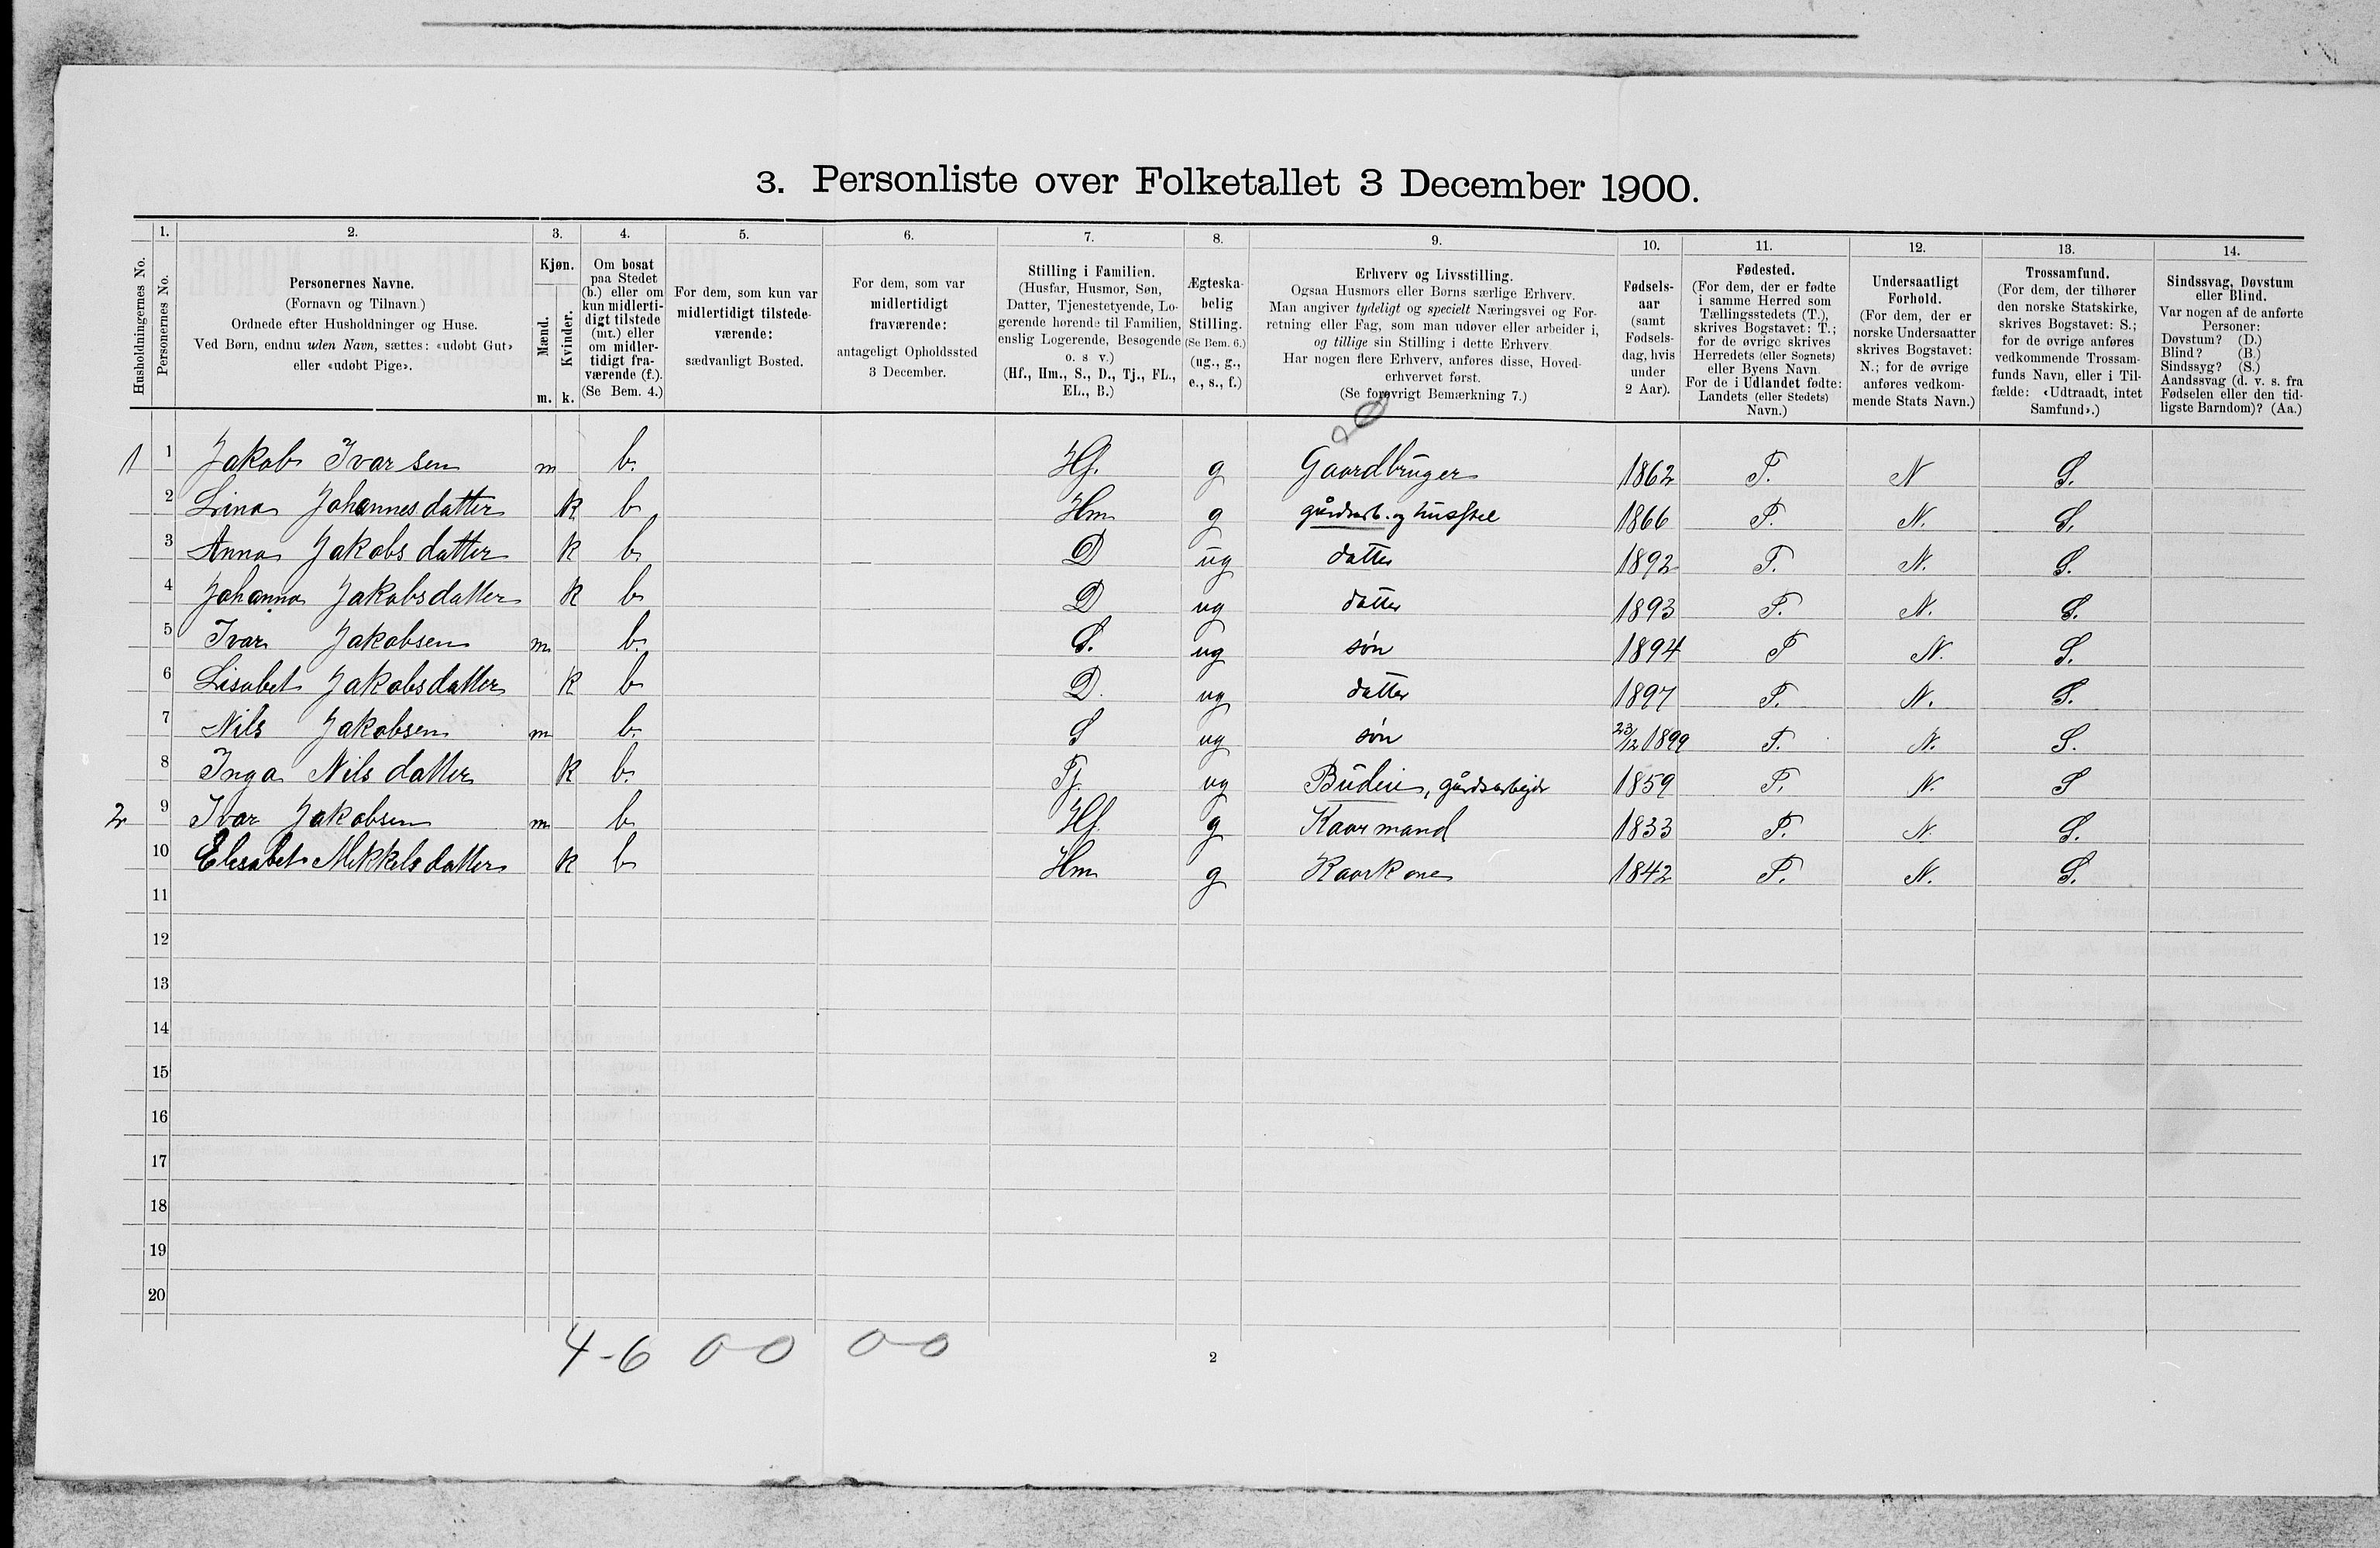 3. Personliste over Folketallet 3 December 1900.
1. 2. 3. 4. 5. 6. 7. 8. 9. 10. 11. 12. 13. 14.
Husholdningernes No.
Personernes No.
Personernes Navne.
(Fornavn og Tilnavn.)
Ordnede efter Husholdninger og Huse.
Ved Børn, endnu uden Navn, sættes: «udøbt Gut»
eller «udøbt Pige».
Kjøn.
Mænd.
Kvinder.
m. k.
Om bosat
paa Stedet
(b.) eller om
kun midlerti-
digt tilstede
(mt.) eller
om midler-
tidigt fra-
værende (f.).
(Se Bem. 4.)
For dem, som kun var
midlertidigt tilstede-
værende:
sædvanligt Bosted.
For dem, som var
midlertidigt
fraværende:
antageligt Opholdssted
3 December.
Stilling i Familien.
(Husfar, Husmor, Søn,
Datter, Tjenestetyende, Lo-
gerende hørende til Familien,
enslig Logerende, Besøgende
o. s v.)
(Hf., Hm., S., D., Tj., FL.,
EL., B.)
Ægteska-
belig
Stilling.
(Se Bem. 6.)
(ug., g.,
e., s., f.)
Erhverv og Livsstilling.
Ogsaa Husmors eller Børns særlige Erhverv.
Man angiver tydeligt og specielt Næringsvei og For-
retning eller Fag, som man udøver eller arbeider i,
og tillige sin Stilling i dette Erhverv.
Har nogen flere Erhverv, anføres disse, Hoved-
erhvervet først.
(Se forøvrigt Bemærkning 7.)
Fødsels-
aar
(samt
Fødsels-
dag, hvis
under
2 Aar).
Fødested.
(For dem, der er fødte
i samme Herred som
Tællingsstedets (T.),
skrives Bogstavet: T.;
for de øvrige skrives
Herredets (eller Sognets)
eller Byens Navn.
For de i Udlandet fødte:
Landets (eller Stedets)
Navn.)
Undersaatligt
Forhold.
(For dem, der er
norske Undersaatter
skrives Bogstavet:
N.; for de øvrige
anføres vedkom-
mende Stats Navn.)
Trossamfund.
(For dem, der tilhører
den norske Statskirke,
skrives Bogstavet: S.;
for de øvrige anføres
vedkommende Trossam-
funds Navn, eller i Til-
fælde: «Udtraadt, intet
Samfund».)
Sindssvag, Døvstum
eller Blind.
Var nogen af de anførte
Personer:
Døvstum? (D.)
Blind? (B.)
Sindssyg? (S.)
Aandssvag (d. v. s. fra
Fødselen eller den tid-
ligste Barndom)? (Aa.)
1 1 Jakob Ivarsen m b. Hf. g Gaardbruger 1862 T. N S.
2 Lina Johannesdatter k b Hm g gårdsarb. og husstel 1866 T. N. S.
3 Anna Jakobsdatter k b. D ug datter 1892 T. N. S.
4 Johanna Jakobsdatter k b D ug datter 1893 T. N. S.
5 Ivar Jakobsen m b. S. ug søn 1894 T N. S.
6 Lisabet Jakobsdatter k b D. ug datter 1897 T. N. S.
7 Nils Jakobsen m b. S ug søn 23/12 1899 T. N. S.
8 Inga Nilsdatter k b. Tj. ug Budeie, gårdsarbejde 1859 T. N. S
2 9 Ivar Jakobsen m b Hf g Kaarmand 1833 T. N. S.
10 Elesabet Mikkelsdatter k b Hm g Kaarkone 1842 T. N. S.
11
12
13
14
15
16
17
18
19
20
4-6 0-0 0-0
2